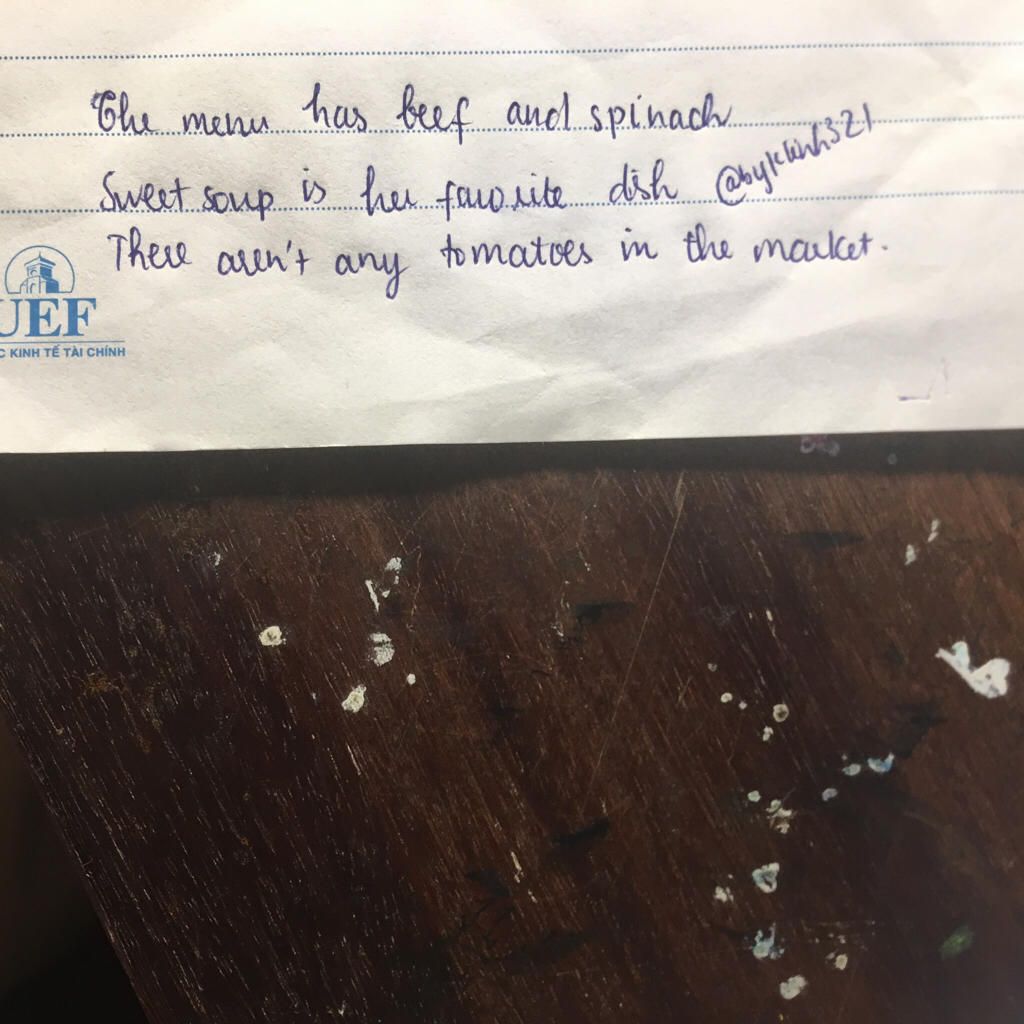 The menu has beef and spinach
Sweet soup is her favorite dish @byklinh321
There aren't any tomatoes in the market.
UEF
C KINH TẾ TÀI CHÍNH